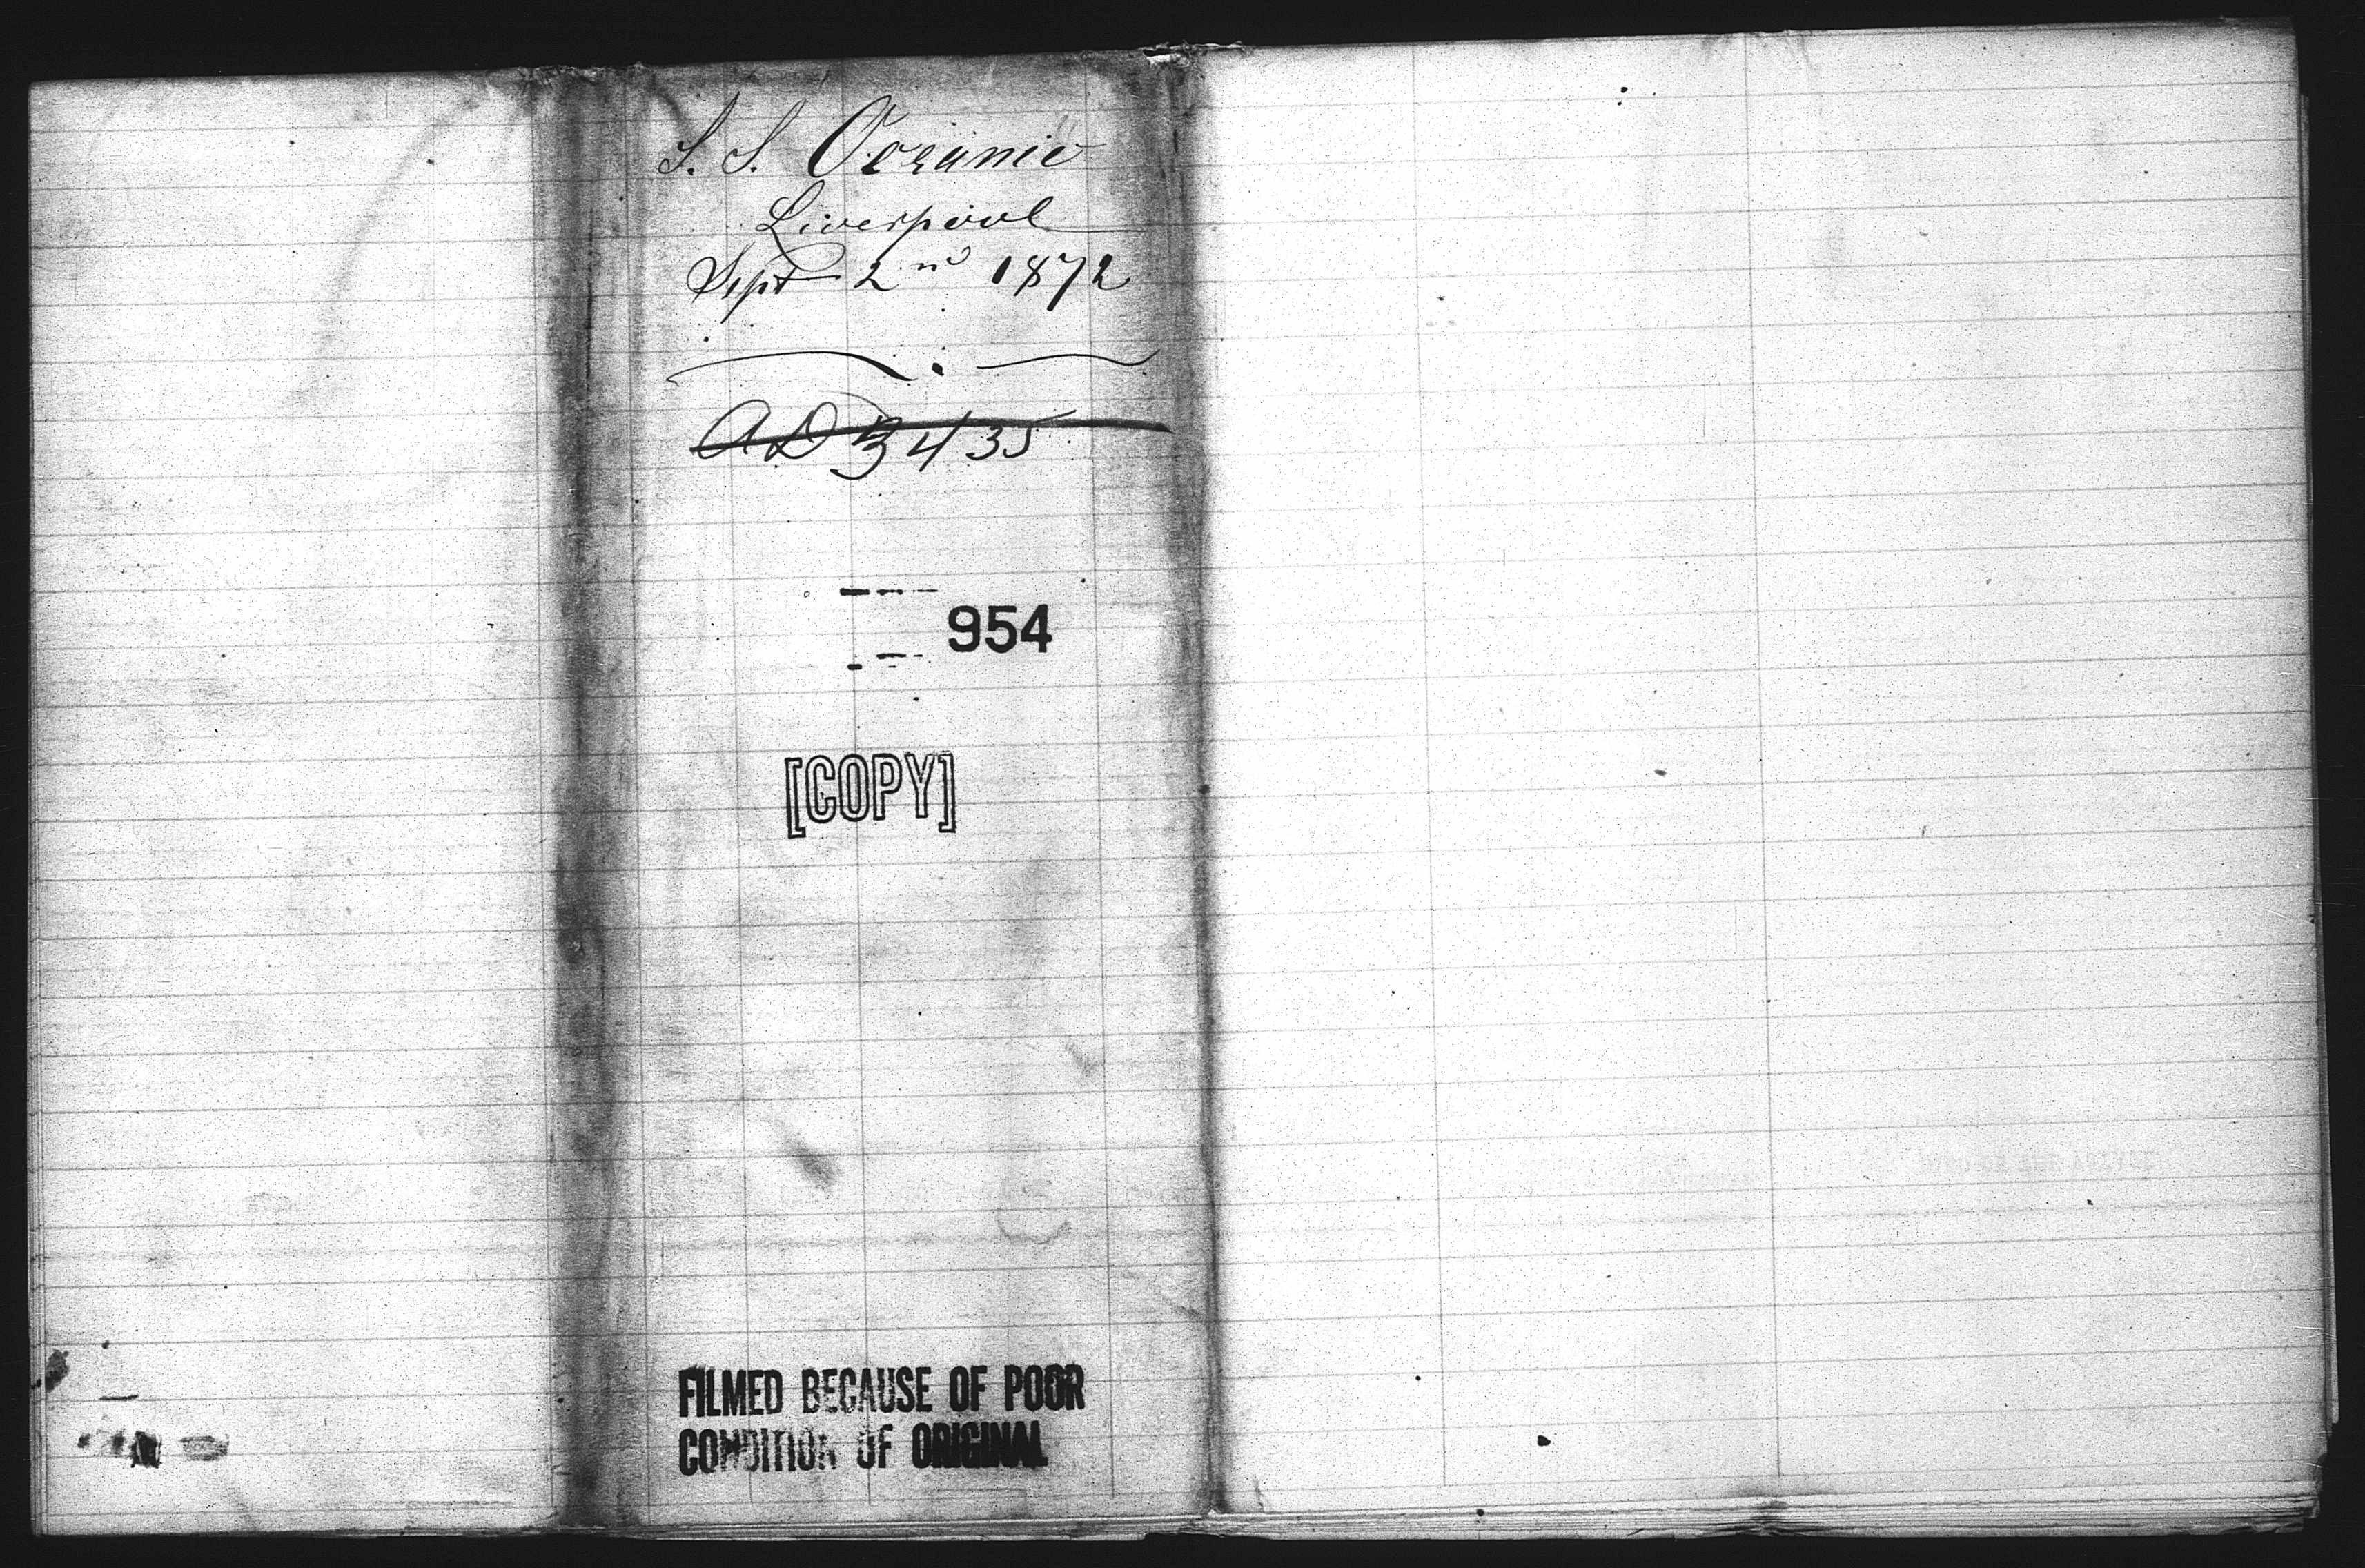 S. S. Oceanic
Liverpool
Sept 2nd 1872
AD 3435
954
[COPY]
FILMED BECAUSE OF POOR
CONDITION OF ORIGINAL